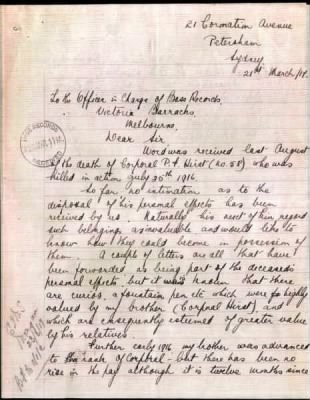 21 Cormation Avenue
Petersham
Sydney
21st March/17.
To the Officer in Charge of Base Records,
Victoria Barracks,
Melbourne.
Dear Sir
Word was received last August
of the death of Corporal P. A. Hirst (no. 58) who was
killed in action July 25th 1916.
So far no intimation as to the
disposal of his personal effects has been
received by us. Naturally his next of kin regard
such belongings as invaluable and would like to
know how they could become in possession of
them. A couple of letters are all that have
been forwarded as being part of the deceased's
personal effects but it was known that there
are curios, a fountain pen etc which were so highly
valued by my brother (Corporal Hirst), and
which are consequently esteemed of greater value
by his relatives.
Further early 1916 my brother was advanced
to the rank of Corporal - but there has been no
rise in the pay although it is twelve months since